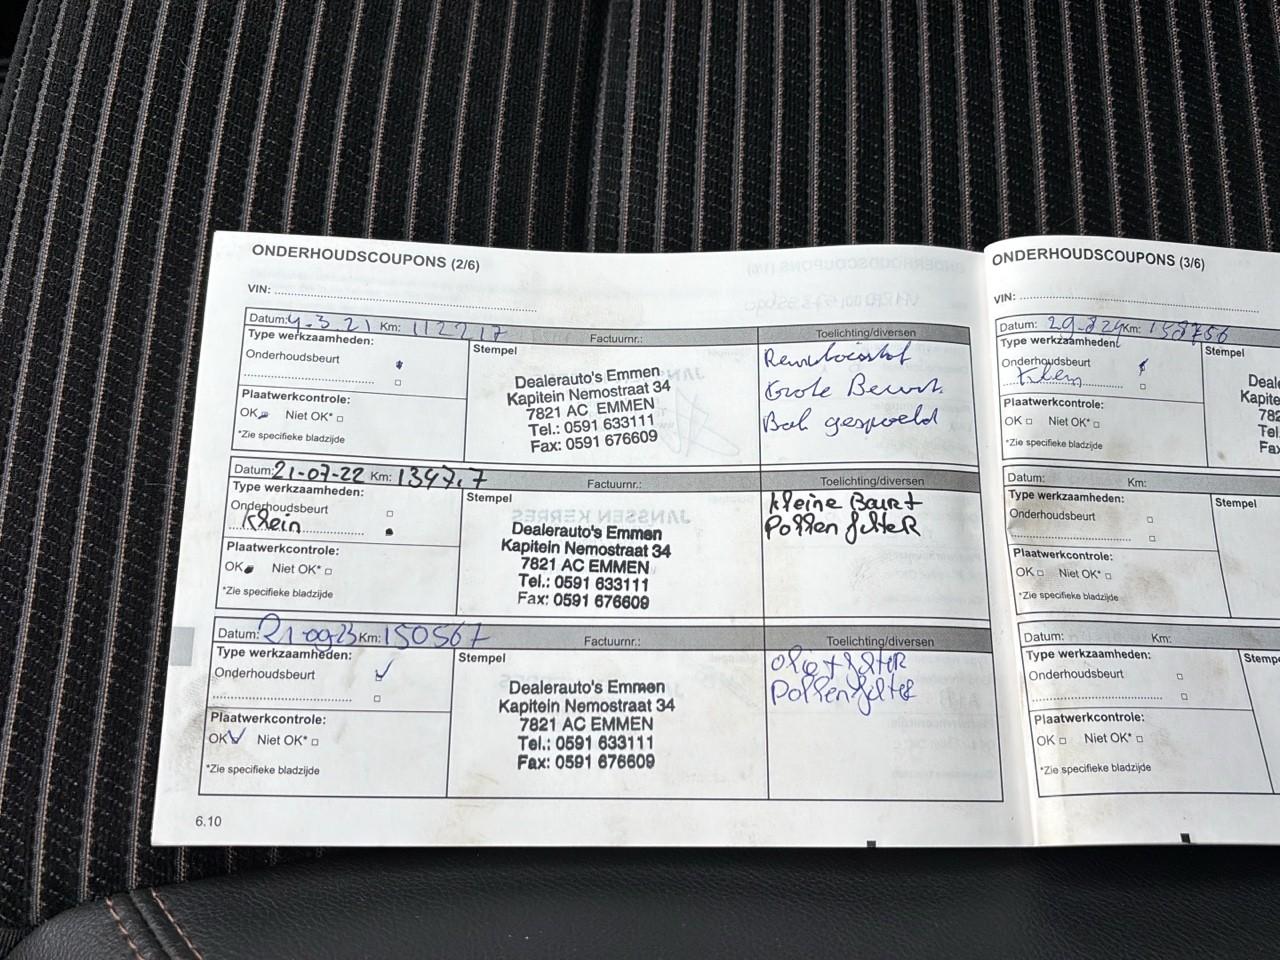 ONDERHOUDSCOUPONS (2/6)
VIN:
Datum: 4-3-21 Km: 112217 Factuurnr.: Toelichting/diversen
Type werkzaamheden:
Onderhoudsbeurt
Plaatwerkcontrole:
OK Niet OK*
*Zie specifieke bladzijde
Stempel
Dealerauto's Emmen
Kapitein Nemostraat 34
7821 AC EMMEN
Tel.: 0591 633111
Fax: 0591 676609
Remvloeistof
Grote Beurt
Bak gespoeld
Datum: 21-07-22 Km: 1347.7 Factuurnr.: Toelichting/diversen
Type werkzaamheden:
Onderhoudsbeurt
Klein
Plaatwerkcontrole:
OK Niet OK*
*Zie specifieke bladzijde
Stempel
Dealerauto's Emmen
Kapitein Nemostraat 34
7821 AC EMMEN
Tel.: 0591 633111
Fax: 0591 676609
kleine Beurt
Pollen filteR
Datum: 21-09-23 Km: 150567 Factuurnr.: Toelichting/diversen
Type werkzaamheden:
Onderhoudsbeurt
Plaatwerkcontrole:
OK Niet OK*
*Zie specifieke bladzijde
Stempel
Dealerauto's Emmen
Kapitein Nemostraat 34
7821 AC EMMEN
Tel.: 0591 633111
Fax: 0591 676609
olie + filteR
Pollenfilter
6.10
ONDERHOUDSCOUPONS (3/6)
VIN:
Datum: 29-8-24 Km: 158756
Type werkzaamheden:
Onderhoudsbeurt
Klein
Plaatwerkcontrole:
OK Niet OK*
*Zie specifieke bladzijde
Stempel
Deale
Kapite
782
Tel.
Fa
Datum: Km:
Type werkzaamheden:
Onderhoudsbeurt
Plaatwerkcontrole:
OK Niet OK*
*Zie specifieke bladzijde
Stempel
Datum: Km:
Type werkzaamheden:
Onderhoudsbeurt
Plaatwerkcontrole:
OK Niet OK*
*Zie specifieke bladzijde
Stemp